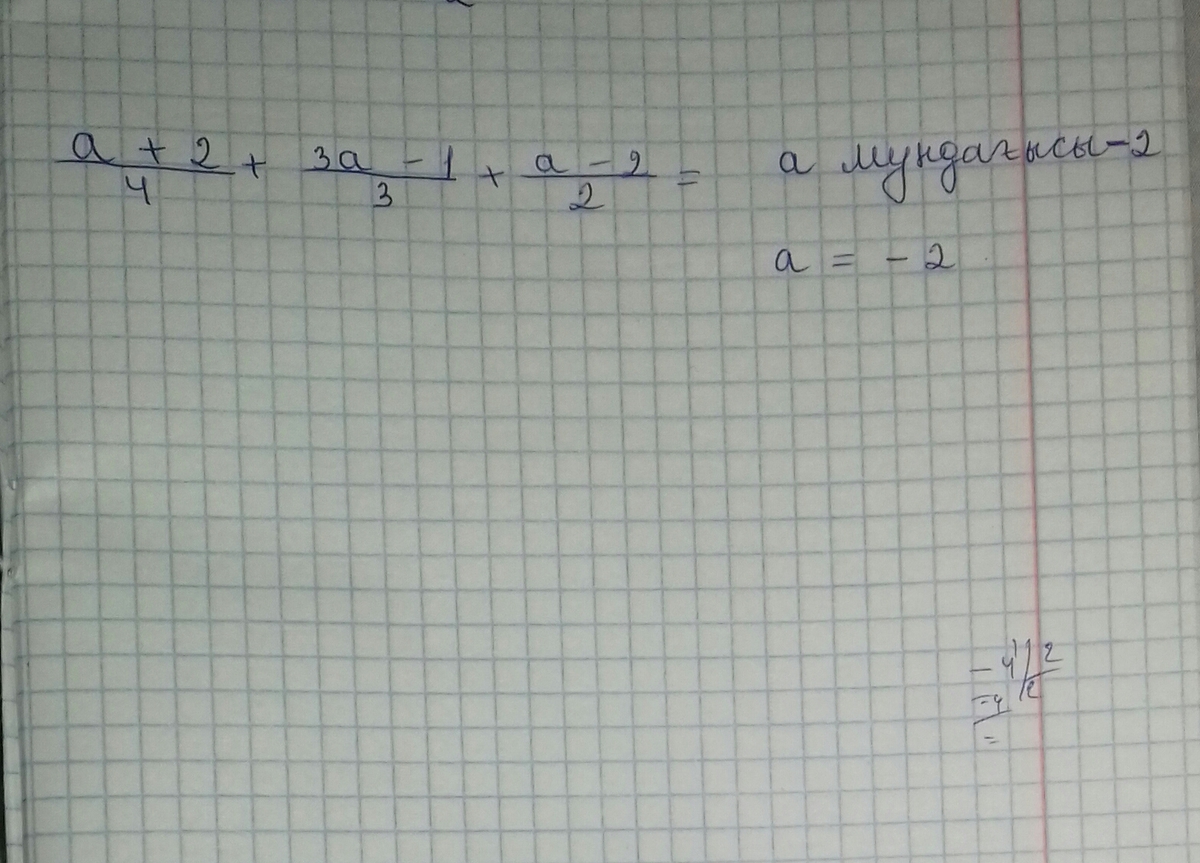 a + 2 / 4 + 3a - 1 / 3 + a - 2 / 2 = a мундағысы-2
a = - 2
- 4 | 2
-4 | 2
=